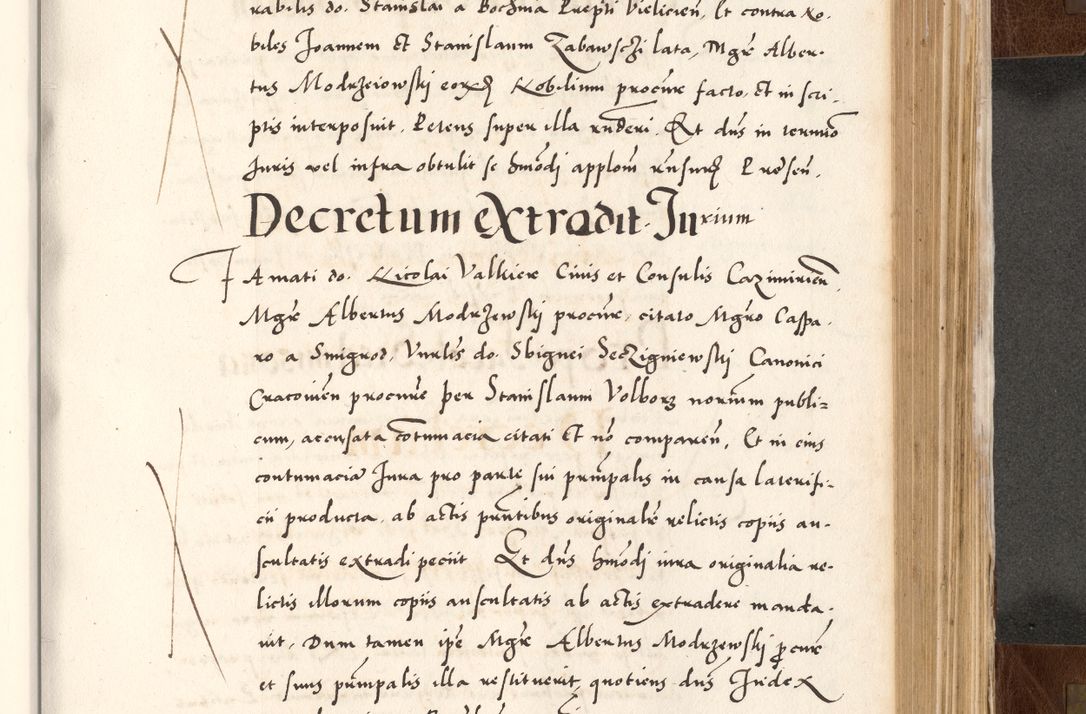 rabilis do. Stanislai a Bochnia Prepti Vieliciēn, Et contra No-
biles Joannem et Stanislaum Zabawschi lata, Mgr̄ Alber-
tus Modrzeiowski eorꝝ Nobilium procūr facto, et in scri-
ptis interposuit, Petens super illa rn̄deri. Et dn̄s in termīo
Juris vel infra obtulit se hmōdi applom̄ rn̄surꝝ Presēn.
Decretum extradit. Jurium
Amati do. Nicolai Valkier Civis et Consulis Cazimiriēn,
Mgr̄ Albertus Modrzewski procūr, citato Mgrō Caspa-
ro a Smigrod, Vnrlis do. Sbignei Seczigniewski Canonici
Cracoviēn procūre per Stanislaum Volborz norium publi-
cum, accusata cōtumacia citati Et nō comparēn, Et in eius
contumaciā Jura pro parte sui prn̄palis in causa laterifi-
cii producta, ab actis prn̄tibus originalr̄ relictis copiis au-
scultatis extradi peciit Et dn̄s hmōdi iura originalia re-
lictis illorum copiis auscultatis ab actis extradere manda-
uit, Dum tamen ipē Mgr̄ Albertus Modrzewski procūr
et suus prn̄palis illa restituerit, quotiens dn̄s Judex